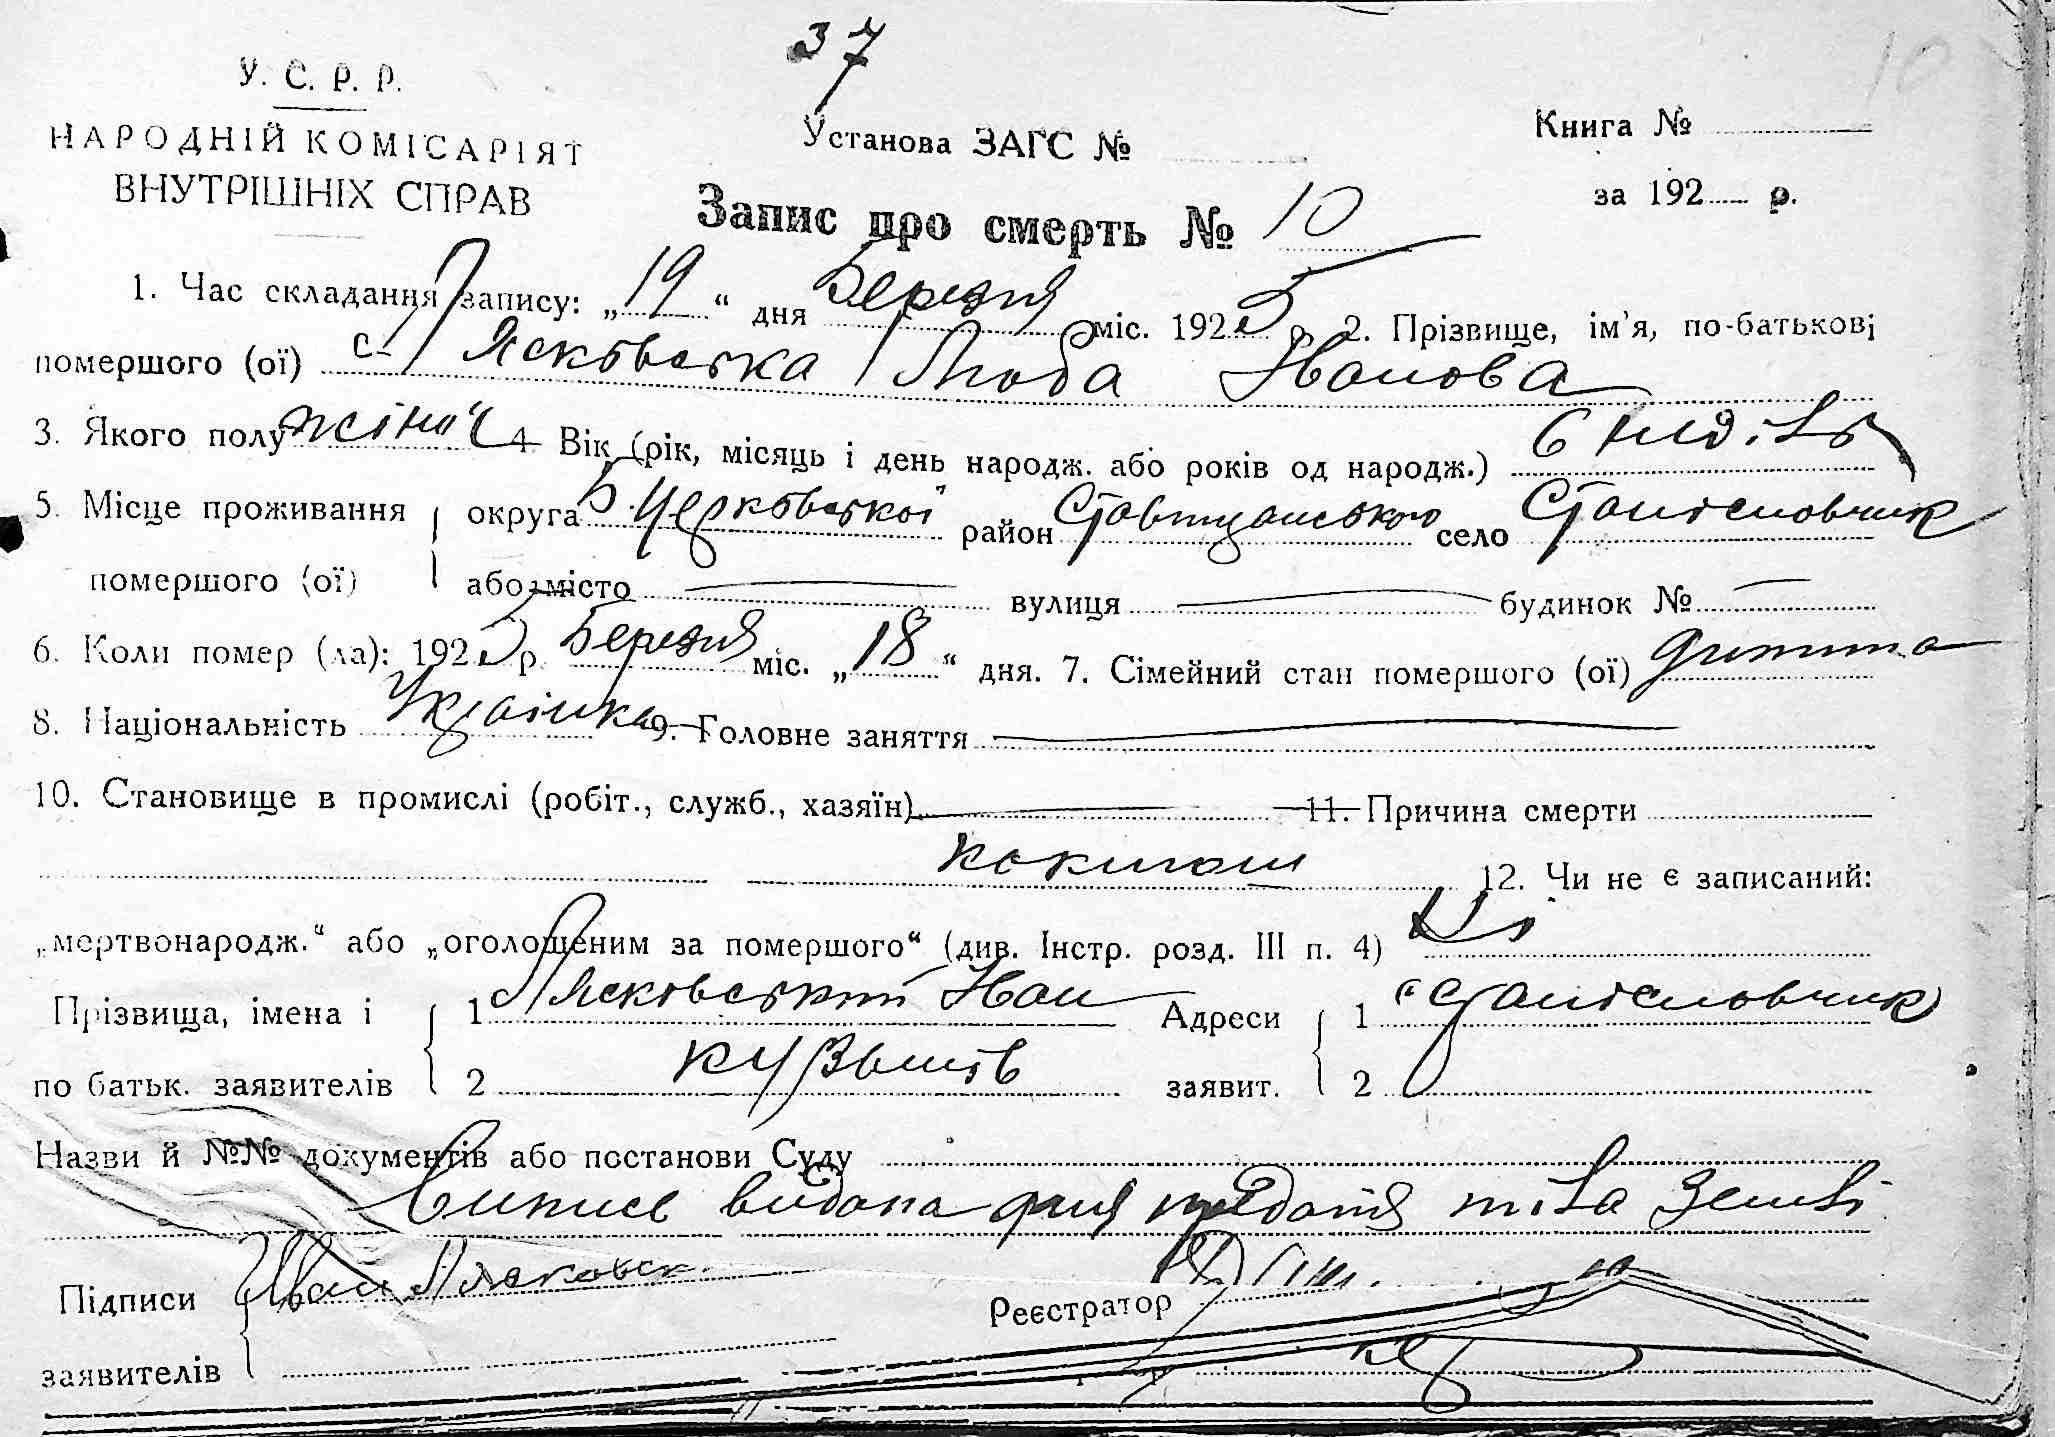 37
10
У. С. Р. Р.
НАРОДНІЙ КОМІСАРІЯТ
ВНУТРІШНІХ СПРАВ
Установа ЗАГС №
Книга №
за 192 р.
Запис про смерть № 10
1. Час складання запису: „19“ дня Березня міс. 1925 р. 2. Прізвище, ім’я, по-батькові
помершого (ої) Лясковська Люба Іванова
3. Якого полу жіноч 4 Вік (рік, місяць і день народж. або років од народж.) 6 неділь
5. Місце проживання округа Б Церковської район Ставищанського село Станіславчик
помершого (ої) або місто вулиця будинок №
6. Коли помер (ла): 1925 р. Березня міс. „18“ дня. 7. Сімейний стан помершого (ої) дитина
8. Національність Українка 9. Головне заняття
10. Становище в промислі (робіт., служб., хазяїн) 11. Причина смерти
коклюш 12. Чи не є записаний:
„мертвонародж.“ або „оголошеним за помершого“ (див. Інстр. розд. III п. 4) Ні
Прізвища, імена і 1 Лясковський Іван Адреси 1 с Станіславчик
по батьк. заявителів 2 Кузьмів заявит. 2
Назви й №№ документів або постанови Суду
Випись видана для придання тіла землі
Підписи Іван Лясковск. Реєстратор
заявителів